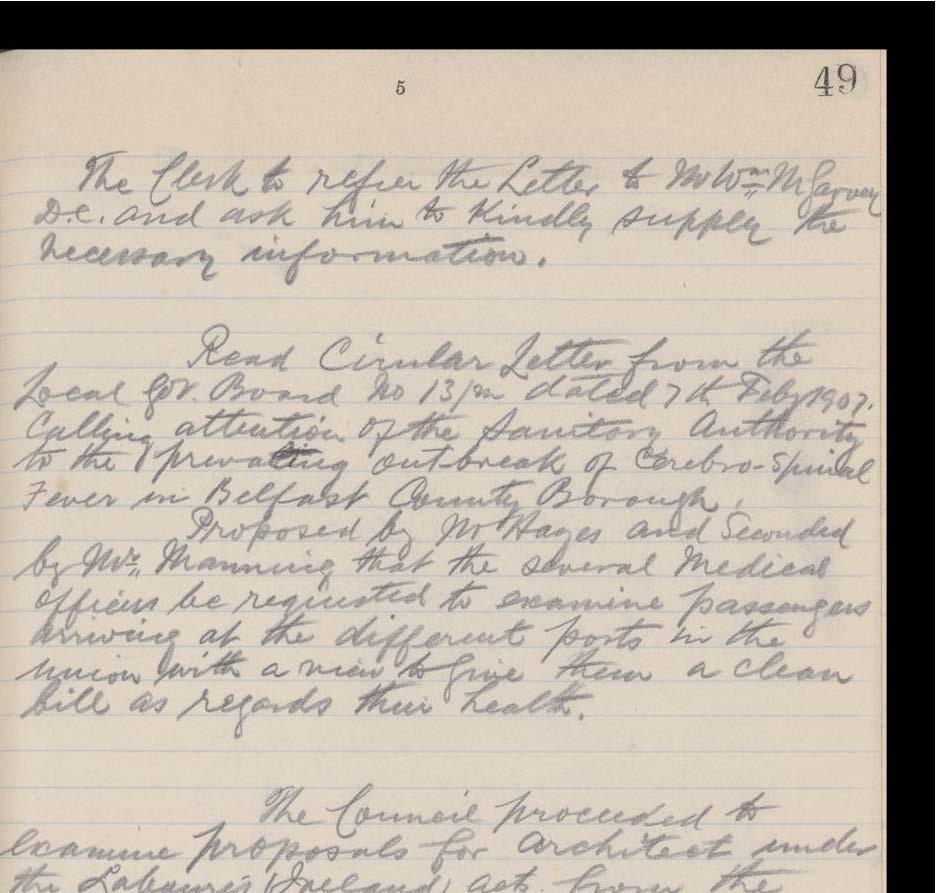 5
49
The Clerk to refer the Letter to Mr Wm McGarvey
D.C. and ask him to Kindly supply the
necessary information.
Read Circular Letter from the
Local Gov. Board No 13/m dated 7th Feby 1907.
Calling attention of the Sanitory Authority
to the prevailing out-break of Cerebro-Spinal
Fever in Belfast County Borough.
Proposed by Mr Hayes and Seconded
by Mr. Manning that the several Medical
officers be requested to examine passengers
arriving at the different ports in the
union with a view to give them a clean
bill as regards their health.
The Council proceeded to
examine proposals for Architect under
the Labourers (Ireland) acts from the